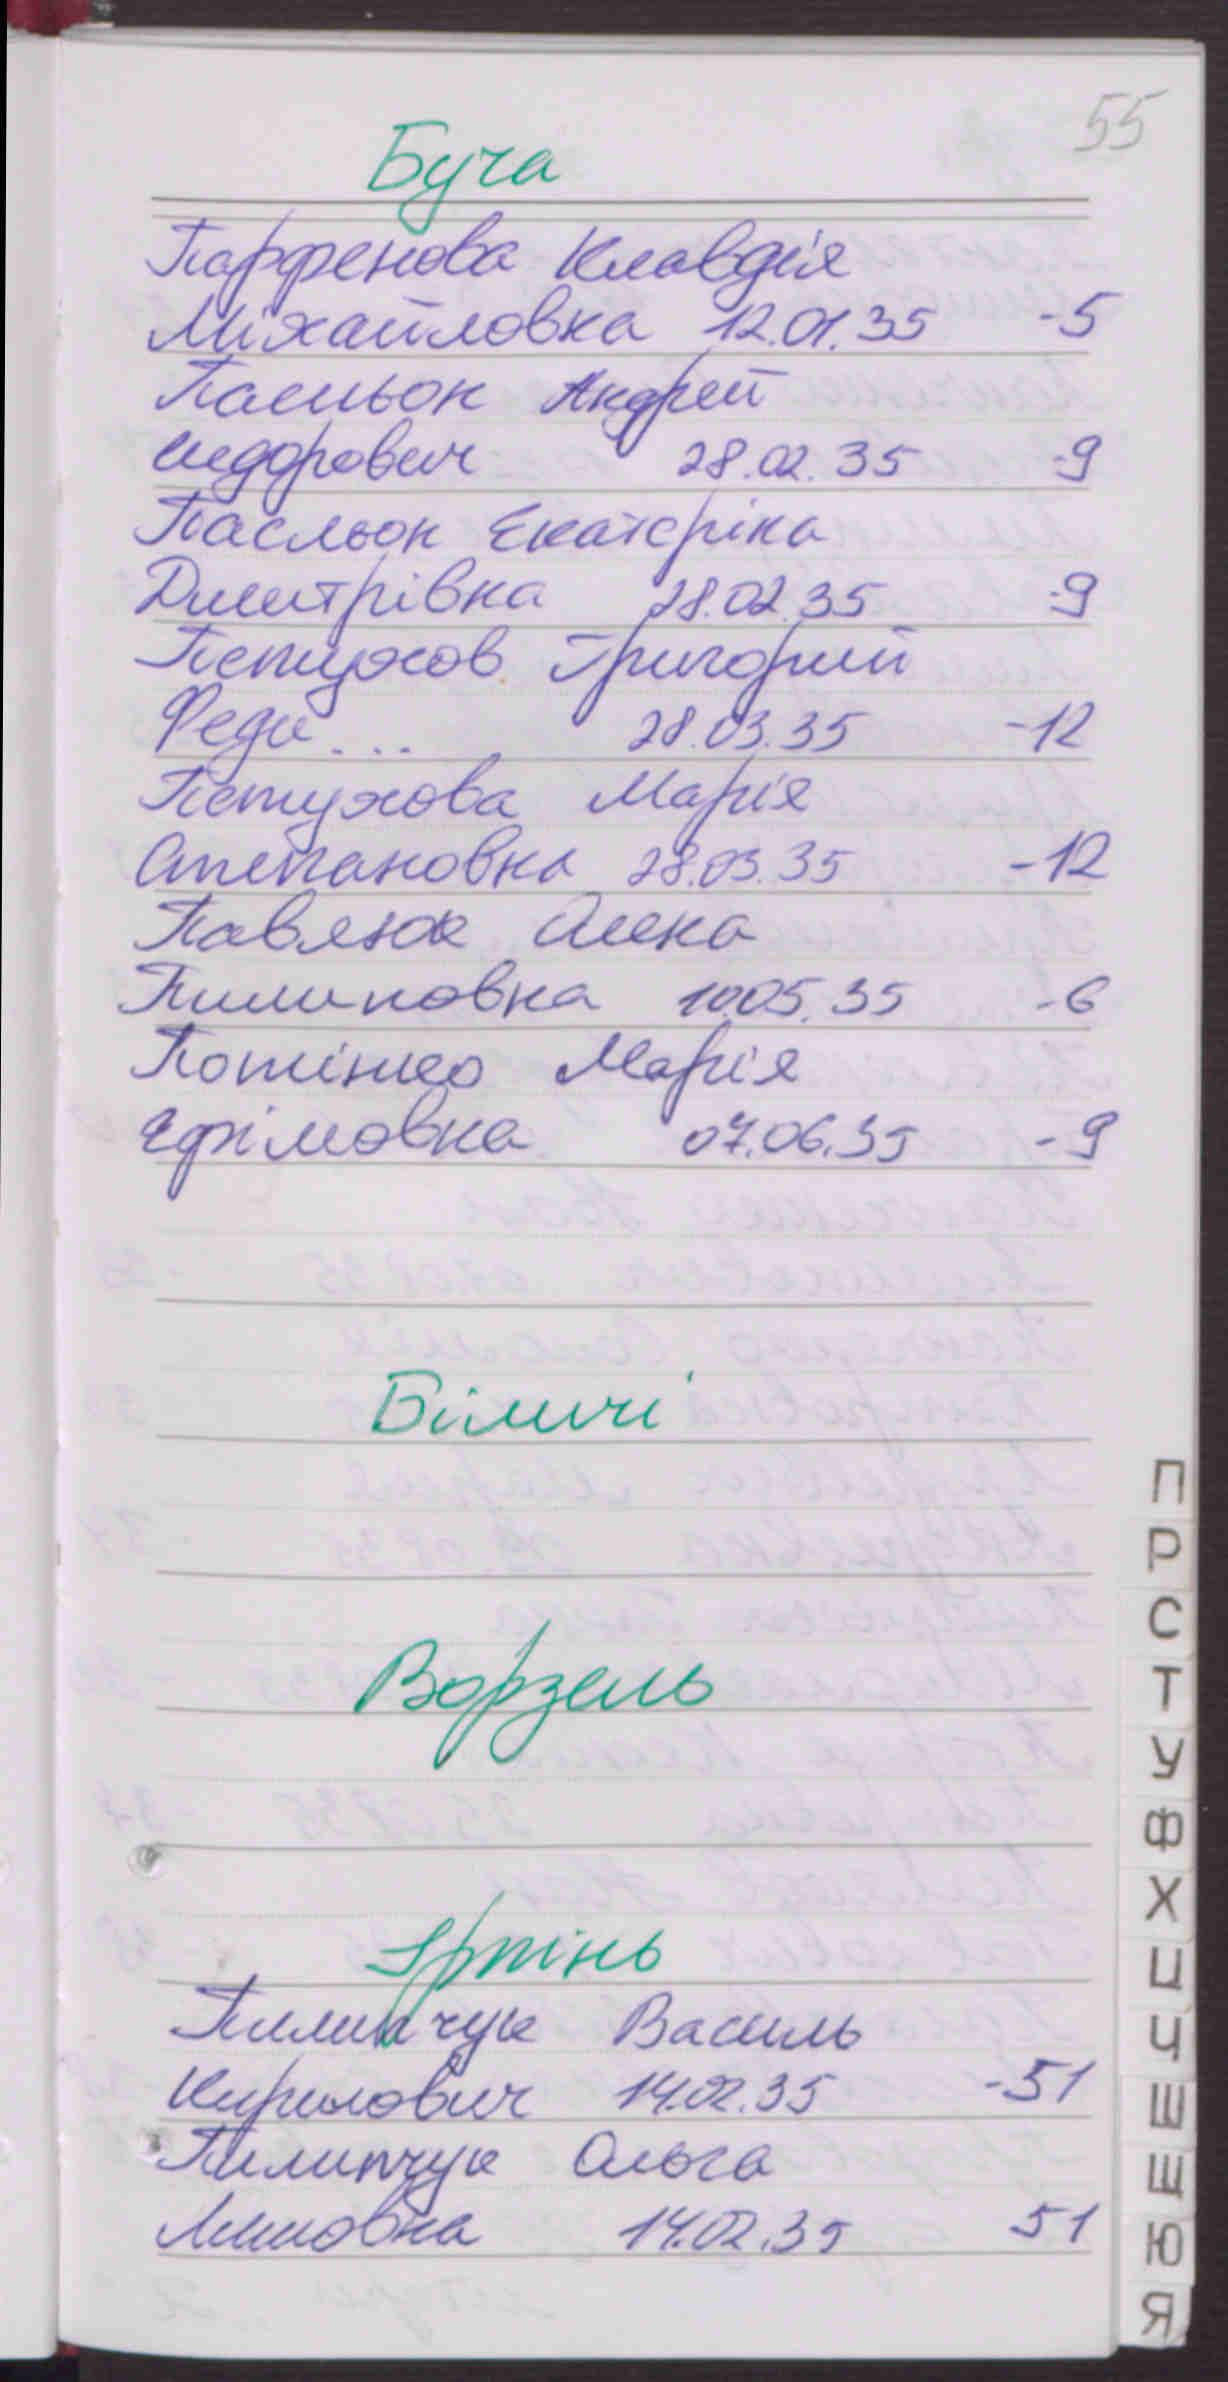 55
Буча
Парфенова Клавдія
Міхайловка 12.01.35 -5
Пасльон Андрей
Сидорович 28.02.35 -9
Пасльон Екатеріна
Дмитрівна 28.02.35 -9
Петухов Григорий
Федо... 28.03.35 -12
Петухова Марія
Степановна 28.03.35 -12
Павлюк Олена
Пилиповна 10.05.35 -6
Потінко Марія
Єфімовна 07.06.35 -9
Біличі
Ворзель
Ірпінь
Пилипчук Василь
Кирилович 14.02.35 -51
Пилипчук Ольга
14.02.35 51
П
Р
С
Т
У
Ф
Х
Ц
Ч
Ш
Щ
Ю
Я